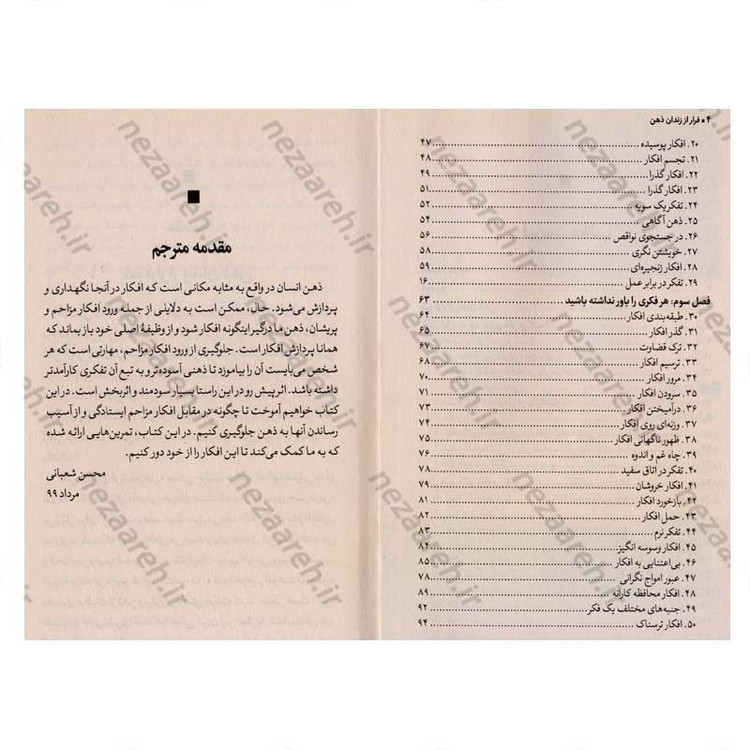 ۴ ■ فرار از زندان ذهن
۲۰. افکار پوسیده ........ ۴۷
۲۱. تجسم افکار ........ ۴۸
۲۲. افکار گذرا ........ ۴۹
۲۳. افکار گذرا ........ ۵۱
۲۴. تفکر یک سویه ........ ۵۲
۲۵. ذهن آگاهی ........ ۵۴
۲۶. در جستجوی نواقص ........ ۵۶
۲۷. خویشتن نگری ........ ۵۸
۲۸. افکار زنجیره‌ای ........ ۵۹
۲۹. تفکر در برابر عمل ........ ۱۶
فصل سوم: هر فکری را باور نداشته باشید ........ ۶۳
۳۰. طبقه‌بندی افکار ........ ۶۴
۳۱. گذر افکار ........ ۶۵
۳۲. ترک قضاوت ........ ۶۷
۳۳. ترسیم افکار ........ ۶۸
۳۴. مرور افکار ........ ۷۰
۳۵. سرودن افکار ........ ۷۱
۳۶. درآمیختن افکار ........ ۷۳
۳۷. وزنه‌ای روی افکار ........ ۷۴
۳۸. ظهور ناگهانی افکار ........ ۷۵
۳۹. چاه غم و اندوه ........ ۷۶
۴۰. تفکر در اتاق سفید ........ ۷۸
۴۱. افکار خروشان ........ ۷۹
۴۲. بازخورد افکار ........ ۸۱
۴۳. حمل افکار ........ ۸۲
۴۴. تفکر نرم ........ ۸۳
۴۵. افکار وسوسه انگیز ........ ۸۴
۴۶. بی‌اعتنایی به افکار ........ ۸۶
۴۷. عبور امواج نگرانی ........ ۷۸
۴۸. افکار محافظه کارانه ........ ۸۹
۴۹. جنبه‌های مختلف یک فکر ........ ۹۲
۵۰. افکار ترسناک ........ ۹۴
مقدمه مترجم
ذهن انسان در واقع به مثابه مکانی است که افکار در آنجا نگهداری و
پردازش می‌شود. حال، ممکن است به دلایلی از جمله ورود افکار مزاحم و
پریشان، ذهن ما درگیر اینگونه افکار شود و از وظیفهٔ اصلی خود باز بماند که
همانا پردازش افکار است. جلوگیری از ورود افکار مزاحم، مهارتی است که هر
شخص می‌بایست آن را بیاموزد تا ذهنی آسوده‌تر و به تبع آن تفکری کارآمدتر
داشته باشد. اثر پیش رو در این راستا بسیار سودمند و اثربخش است. در این
کتاب خواهیم آموخت تا چگونه در مقابل افکار مزاحم ایستادگی و از آسیب
رساندن آنها به ذهن جلوگیری کنیم. در این کتاب، تمرین‌هایی ارائه شده
که به ما کمک می‌کند تا این افکار را از خود دور کنیم.
محسن شعبانی
مرداد ۹۹
nezaareh.ir
nezaareh.ir
nezaareh.ir
nezaareh.ir
nezaareh.ir
nezaareh.ir